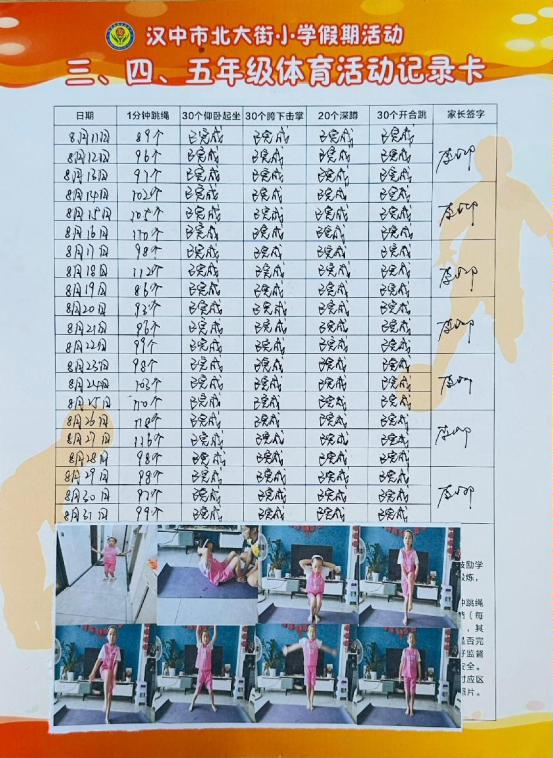 汉中市北大街小学假期活动
三、四、五年级体育活动记录卡
日期 1分钟跳绳 30个仰卧起坐 30个胯下击掌 20个深蹲 30个开合跳 家长签字
8月11日 89个 已完成 已完成 已完成 已完成
8月12日 96个 已完成 已完成 已完成 已完成
8月13日 97个 已完成 已完成 已完成 已完成
8月14日 102个 已完成 已完成 已完成 已完成
8月15日 105个 已完成 已完成 已完成 已完成
8月16日 110个 已完成 已完成 已完成 已完成
8月17日 98个 已完成 已完成 已完成 已完成
8月18日 112个 已完成 已完成 已完成 已完成
8月19日 86个 已完成 已完成 已完成 已完成
8月20日 93个 已完成 已完成 已完成 已完成
8月21日 96个 已完成 已完成 已完成 已完成
8月22日 99个 已完成 已完成 已完成 已完成
8月23日 98个 已完成 已完成 已完成 已完成
8月24日 103个 已完成 已完成 已完成 已完成
8月25日 110个 已完成 已完成 已完成 已完成
8月26日 118个 已完成 已完成 已完成 已完成
8月27日 116个 已完成 已完成 已完成 已完成
8月28日 98个 已完成 已完成 已完成 已完成
8月29日 98个 已完成 已完成 已完成 已完成
8月30日 97个 已完成 已完成 已完成 已完成
8月31日 99个 已完成 已完成 已完成 已完成
励学
炼，
跳绳
（每
，其
是否完
好监督
安全。
对应区
照片。